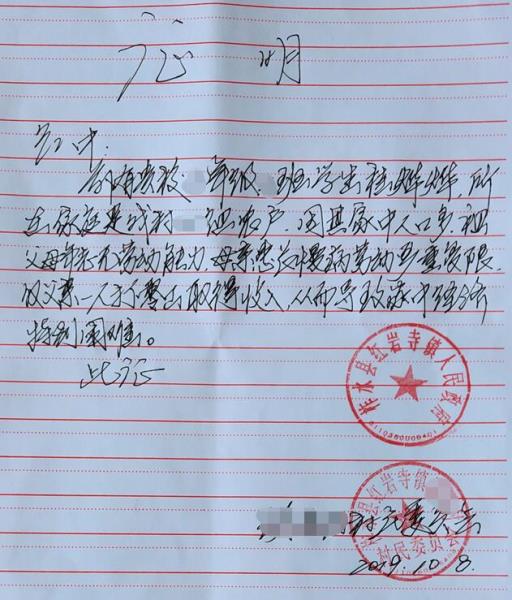 证 明
红中：
今有贵校 年级 班学生 ，所
在家庭是我村 组农户，因其家中人口多，祖
父母年老无劳动能力，母亲患有慢病劳动严重受限，
仅父亲一人打零工取得收入，从而导致家中经济
特别困难。
此证
柞水县红岩寺镇人民政府
村民委员会
2019.10.8.
县红岩寺镇
村民委员会